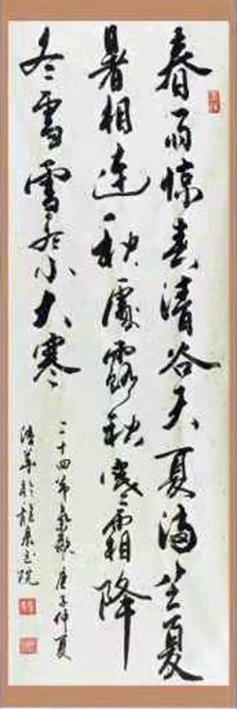 春雨惊春清谷天夏满芒夏
暑相连秋處露秋寒霜降
冬雪雪冬小大寒
二十四节氣歌 庚子仲夏
於书院